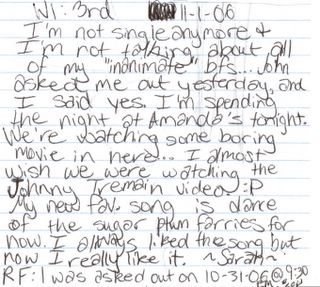 N1: 3rd 11-1-06
I'm not single anymore &
I'm not talking about all
of my "inanimate" bfs... John
asked me out yesterday, and
I said yes. I'm spending
the night at Amanda's tonight.
We're watching some boring
movie in here... I almost
wish we were watching the
Johnny Tremain video :P
My new fav. song is dance
of the sugar plum farries for
now. I always liked the song but
now I really like it. ~Sarah~
RF: I was asked out on 10-31-06 @ 9:30